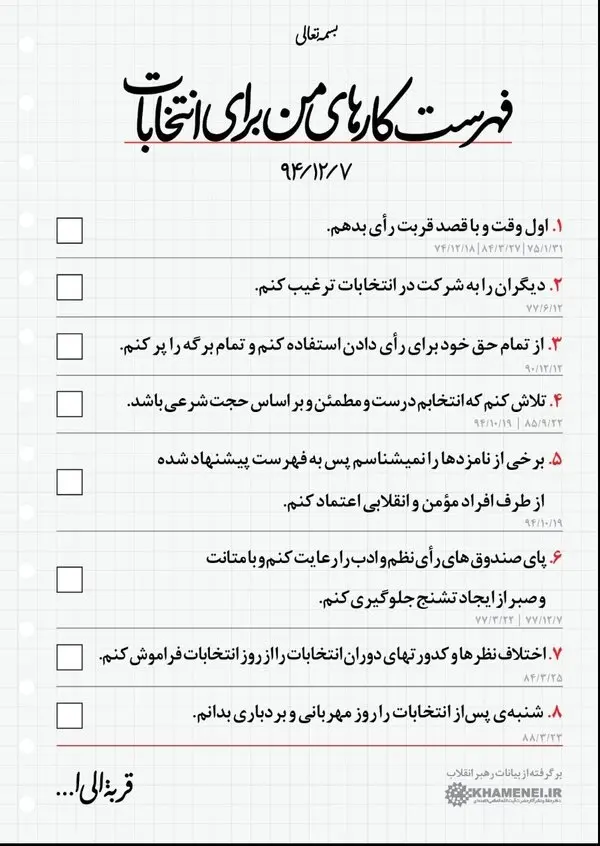 بسمه تعالی
فهرست کارهای من برای انتخابات
۹۴/۱۲/۷
۱. اول وقت و با قصد قربت رأی بدهم.
۷۴/۱۲/۱۸ | ۸۴/۳/۲۷ | ۷۵/۱/۳۱
۲. دیگران را به شرکت در انتخابات ترغیب کنم.
۷۷/۶/۱۲
۳. از تمام حق خود برای رأی دادن استفاده کنم و تمام برگه را پر کنم.
۹۰/۱۲/۱۲
۴. تلاش کنم که انتخابم درست و مطمئن و بر اساس حجت شرعی باشد.
۹۴/۱۰/۱۹ | ۸۵/۹/۲۲
۵. برخی از نامزدها را نمیشناسم پس به فهرست پیشنهاد شده
از طرف افراد مؤمن و انقلابی اعتماد کنم.
۹۴/۱۰/۱۹
۶. پای صندوق های رأی نظم و ادب را رعایت کنم و با متانت
و صبر از ایجاد تشنج جلوگیری کنم.
۷۷/۳/۲۲ | ۷۷/۱۲/۷
۷. اختلاف نظرها و کدورتهای دوران انتخابات را از روز انتخابات فراموش کنم.
۸۴/۳/۲۵
۸. شنبه‌ی پس از انتخابات را روز مهربانی و بردباری بدانم.
۸۸/۳/۲۳
برگرفته از بیانات رهبر انقلاب
KHAMENEI.IR
قربة الی ا...